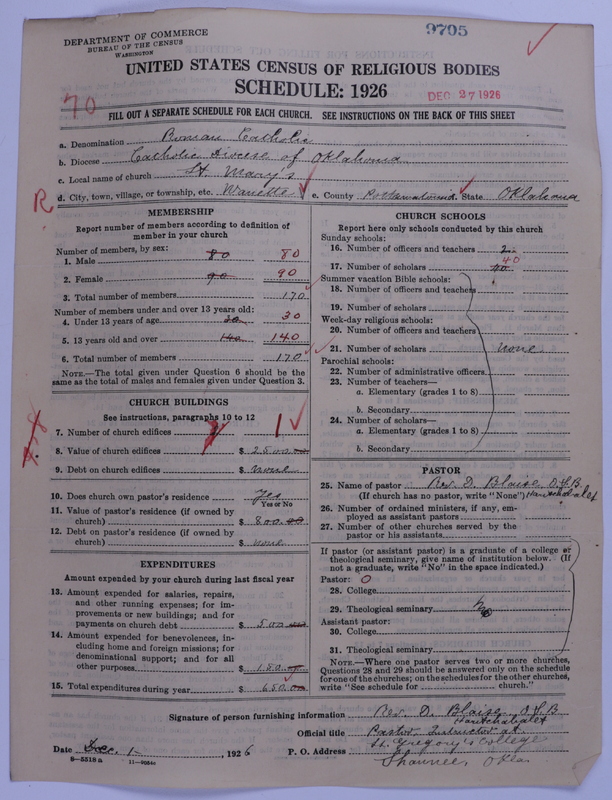 DEPARTMENT OF COMMERCE
BUREAU OF THE CENSUS
WASHINGTON
9705
UNITED STATES CENSUS OF RELIGIOUS BODIES
SCHEDULE: 1926
DEC 27 1926
70
FILL OUT A SEPARATE SCHEDULE FOR EACH CHURCH. SEE INSTRUCTIONS ON THE BACK OF THIS SHEET
a. Denomination Roman Catholic
b. Diocese Catholic Diocese of Oklahoma
c. Local name of church St. Mary's
d. City, town, village, or township, etc. Wanette e. County State Oklahoma
R
MEMBERSHIP
Report number of members according to definition of
member in your church
Number of members, by sex:
1. Male 80 80
2. Female 90 90
3. Total number of members 170
Number of members under and over 13 years old:
4. Under 13 years of age 30 30
5. 13 years old and over 140 140
6. Total number of members 170
NOTE.—The total given under Question 6 should be the
same as the total of males and females given under Question 3.
CHURCH BUILDINGS
See instructions, paragraphs 10 to 12
7. Number of church edifices 1
8. Value of church edifices $ 2500.00
9. Debt on church edifices $ none
10. Does church own pastor's residence Yes
Yes or No
11. Value of pastor's residence (if owned by
church) $ 800.00
12. Debt on pastor's residence (if owned by
church) $ none
EXPENDITURES
Amount expended by your church during last fiscal year
13. Amount expended for salaries, repairs,
and other running expenses; for im-
provements or new buildings; and for
payments on church debt $ 500.00
14. Amount expended for benevolences, in-
cluding home and foreign missions; for
denominational support; and for all
other purposes $ 150.00
15. Total expenditures during year $ 650.00
CHURCH SCHOOLS
Report here only schools conducted by this church
Sunday schools:
16. Number of officers and teachers 2
17. Number of scholars 40 40
Summer vacation Bible schools:
18. Number of officers and teachers
19. Number of scholars
Week-day religious schools:
20. Number of officers and teachers
21. Number of scholars none
Parochial schools:
22. Number of administrative officers
23. Number of teachers—
a. Elementary (grades 1 to 8)
b. Secondary
24. Number of scholars—
a. Elementary (grades 1 to 8)
b. Secondary
PASTOR
25. Name of pastor Rev. D. Blaise, O.S.B.
(If church has no pastor, write "None")
26. Number of ordained ministers, if any, em-
ployed as assistant pastors
27. Number of other churches served by the
pastor or his assistants
If pastor (or assistant pastor) is a graduate of a college or
theological seminary, give name of institution below. (If
not a graduate, write "No" in the space indicated.)
Pastor: 0
28. College
29. Theological seminary No
Assistant pastor:
30. College
31. Theological seminary
NOTE.—Where one pastor serves two or more churches,
Questions 28 and 29 should be answered only on the schedule
for one of the churches; on the schedules for the other churches,
write "See schedule for church."
Signature of person furnishing information Rev. D. Blaise, O.S.B
Official title Pastor, Instructor at
St. Gregory's College
Date Dec. 1- , 1926 P. O. Address Shawnee, Okla.
9-5318a 11-9034